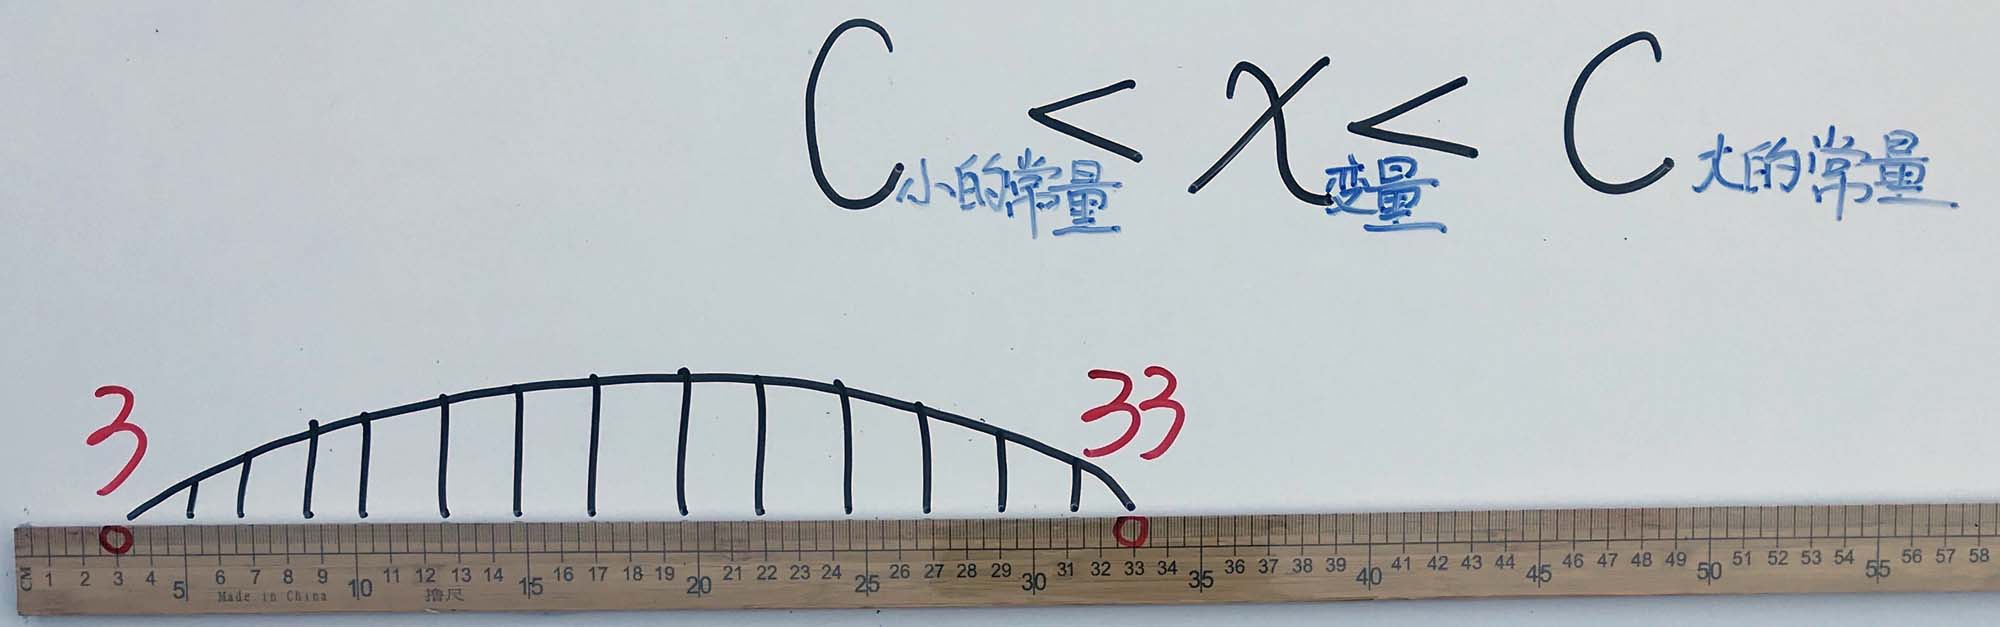 C小的常量 < x变量 < C大的常量
3 33
CM 1 2 3 4 5 6 7 8 9 10 11 12 13 14 15 16 17 18 19 20 21 22 23 24 25 26 27 28 29 30 31 32 33 34 35 36 37 38 39 40 41 42 43 44 45 46 47 48 49 50 51 52 53 54 55 56 57 58
Made in China 撸尺